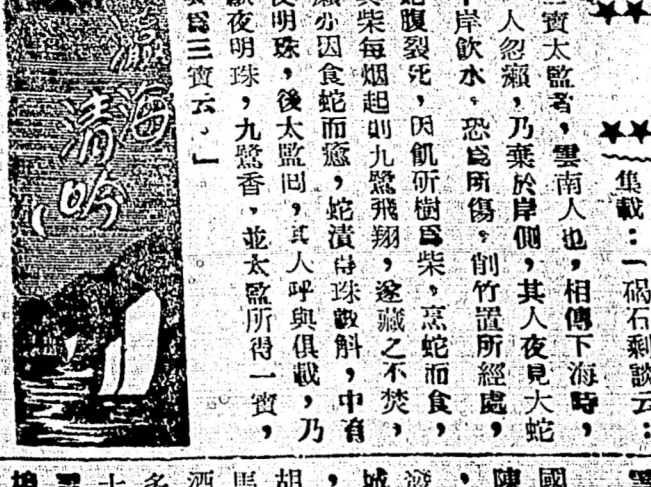 集載：「碣石剩談云：
三寶太監者，雲南人也，相傳下海時，
人忽癩，乃棄於岸側，其人夜見大蛇
岸飲水，恐爲所傷，削竹置所經處，
蛇腹裂死，因飢斫樹爲柴，烹蛇而食，
柴每烟起則九鷺飛翔，遂藏之不焚，
亦因食蛇而癒，蛇潰得珠數斛，中有
夜明珠，後太監回，其人呼與俱載，乃
獻夜明珠，九鷺香，並太監所得一寶，
爲三寶云。」
瀛海清吟
國
陳，
城
胡
馬
酒
多
十